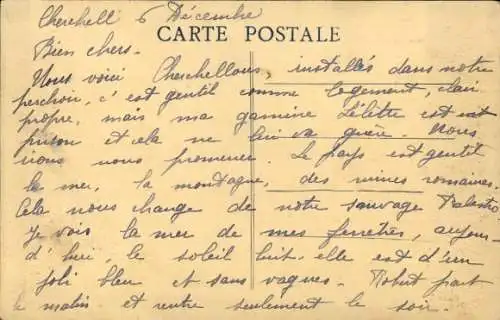 Cherchell 6 Décembre
CARTE POSTALE
Bien chers.
Nous voici Cherchellois, installés dans notre
perchoir, c'est gentil comme logement, clair
propre, mais ma gamine est en
prison et cela ne lui va guère. Nous
irons nous promener. Le pays est gentil
la mer, la montagne, des ruines romaines.
Cela nous change de notre sauvage Palestro
Je vois la mer de mes fenêtres, aujour-
d'hui, le soleil luit, elle est d'un
joli bleu et sans vagues. Robert part
le matin et rentre seulement le soir.